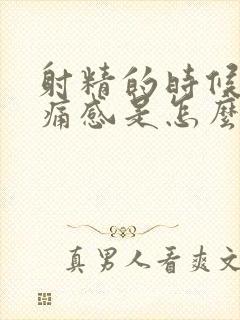 射精的時候
痛感是怎麼
真男人看爽文